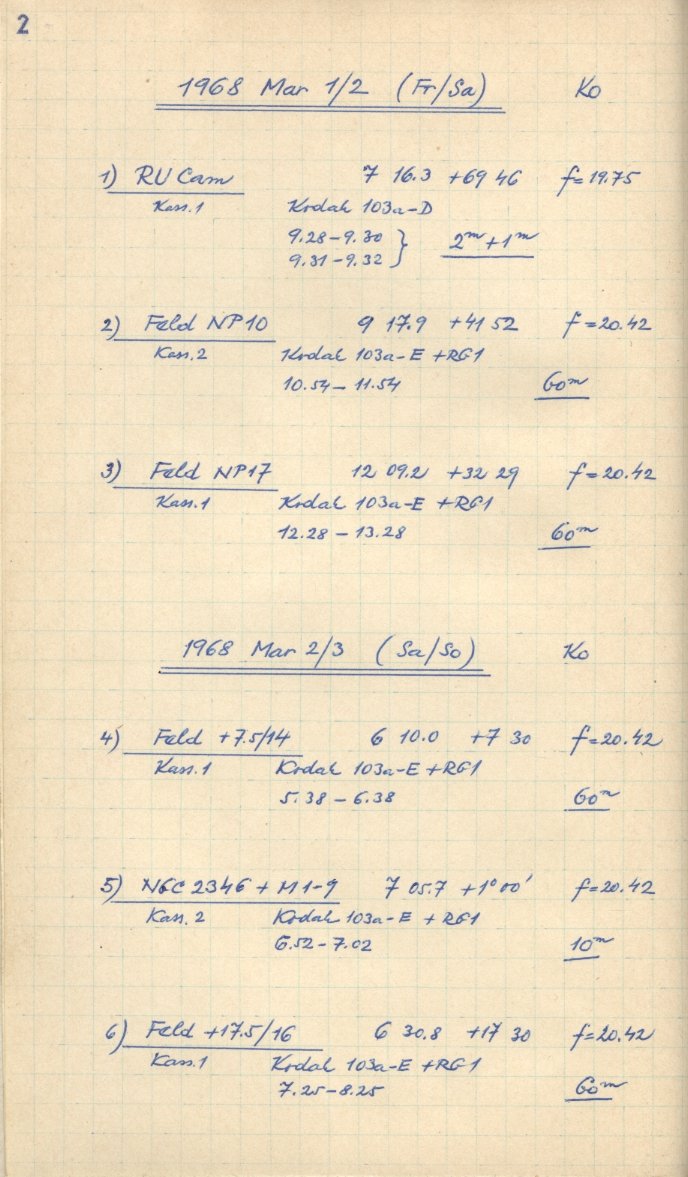 2
1968 Mar 1/2 (Fr/Sa) Ko
1) RU Cam 7 16.3 +69 46 f=19.75
Kass.1 Kodak 103a-D
9.28-9.30 } 2ᵐ+1ᵐ
9.31-9.32
2) Feld NP10 9 17.9 +41 52 f=20.42
Kass.2 Kodak 103a-E +RG1
10.54-11.54 60ᵐ
3) Feld NP17 12 09.2 +32 29 f=20.42
Kass.1 Kodak 103a-E +RG1
12.28-13.28 60ᵐ
1968 Mar 2/3 (Sa/So) Ko
4) Feld +7.5/14 6 10.0 +7 30 f=20.42
Kass.1 Kodak 103a-E +RG1
5.38-6.38 60ᵐ
5) NGC 2346 + M1-9 7 05.7 +1°00' f=20.42
Kass.2 Kodak 103a-E +RG1
6.52-7.02 10ᵐ
6) Feld +17.5/16 6 30.8 +17 30 f=20.42
Kass.1 Kodak 103a-E +RG1
7.25-8.25 60ᵐ